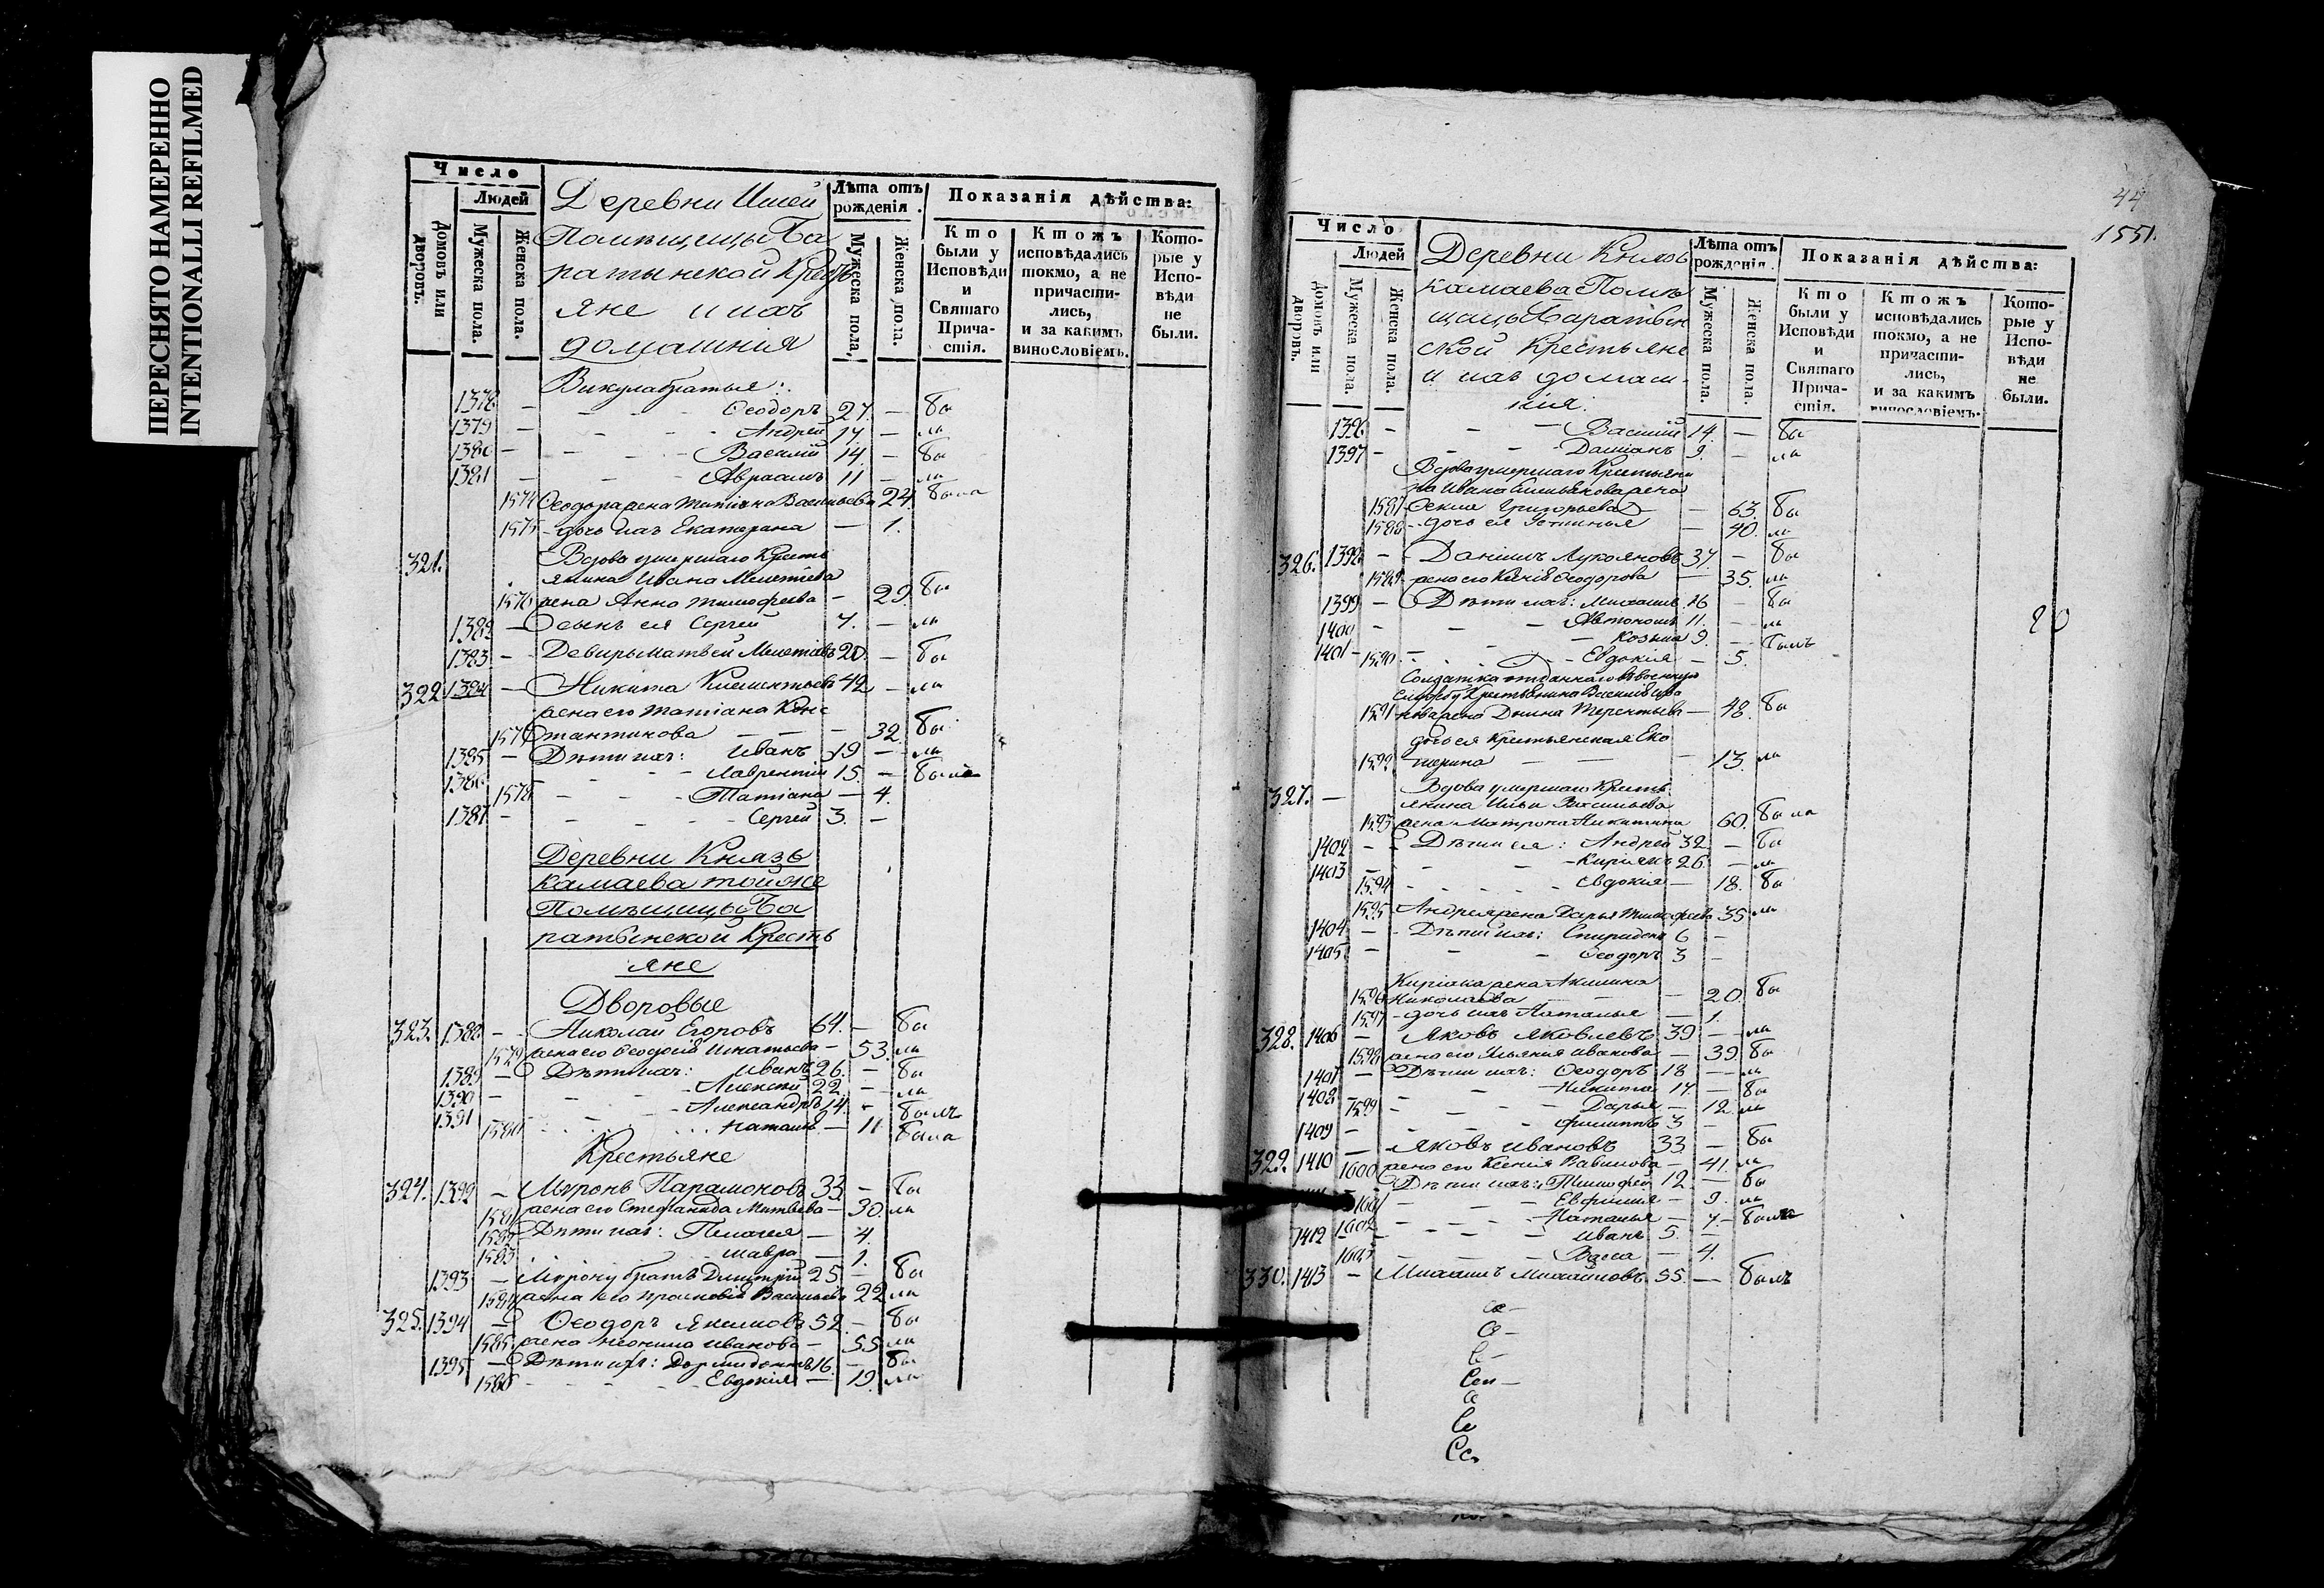 ПЕРЕСНЯТО НАМЕРЕННО
INTENTIONALLI REFILMED
Число
Людей
Домовъ или дворовъ.
Мужеска пола.
Женска пола.
Деревни
Помѣщицы Ба
ратынской Кресть
яне и ихъ
домашнія
Лѣта отъ рожденія.
Мужеска пола,
Женска пола.
Показанія дѣйства:
Кто были у Исповѣди и Святаго Прича-стія.
Ктожъ исповѣдались токмо, а не причасти-лись, и за какимъ винословіемъ.
Кото-рые у Испо-вѣди не были.
Викула братья:
1378 – Ѳеодоръ 27. – бы
1379 – Андрей 17. – ли
1380 – Василій 14. – бы
1381 – Авраамъ 11 – ли
1574 Ѳеодора жена Татіана Васильева 24. была
1575 – дочь ихъ Екатерина – 1.
321. Вдова умершаго Кресть
янина Ивана Мелетіева
1576 жена Анна Тимофеева – 29. бы
1382 – сынъ ея Сергей 7. – ли
1383 – Деверь Матвей Мелетіевъ 20. – бы
322. 1384 – Никита Клементьевъ 42 – ли
жена его Татіана Конс
1577 тантинова – 32. бы
1385 – Дѣти ихъ: Иванъ 19 – ли
1386 – Лаврентій 15. – были
1578 – Татіана – 4.
1387 – Сергей 3. –
Деревни Князь
камаева тойже
Помѣщицы Ба
ратынской Кресть
яне
Дворовые
323. 1388 – Николай Егоровъ 64. – бы
1579 жена его Ѳеодосія Игнатьева – 53. ли
1389 – Дѣти ихъ: Иванъ 26. – бы
1390 – Алексей 22. – ли
1391 – Александръ 14. – былъ
1580 – Наталья – 11 была
Крестьяне
324. 1392 – Миронъ Парамоновъ 33. – бы
1581 жена его Стефанида Матвеева – 30. ли
1582 Дѣти ихъ: Пелагея – 4.
1583 Мавра – 1.
1393 – Мирону братъ Дмитрій 25. – бы
1584 жена его Прасковія Васильева 22 ли
325. 1394 – Ѳеодоръ Якимовъ 52. – бы
1585 жена Неонила Иванова – 55 ли
1395 – Дѣти ихъ: Дормидонтъ 16. – бы
1586 – Евдокія – 19. ли
44
1551.
Число
Людей
Домовъ или дворовъ.
Мужеска пола.
Женска пола.
Деревни Князь
камаева Помѣ
щицы Баратын
ской Крестьяне
и ихъ домаш-
нія.
Лѣта отъ рожденія.
Мужеска пола.
Женска пола.
Показанія дѣйства:
Кто были у Исповѣди и Святаго Прича-стія.
Ктожъ исповѣдались токмо, а не причасти-лись, и за какимъ винословіемъ.
Кото-рые у Испо-вѣди не были.
1396 – Василій 14. – бы
1397 – Даміанъ 9. – ли
Вдова умершаго Крестьяни
на Ивана Емельянова жена
1587 Григорьева – 63. бы
1588 – дочь ея Устинья – 40. ли
326. 1398 – Даніилъ Лукояновъ 37. – бы
1589 жена его Ксенія Ѳеодорова – 35. ли
1399 – Дѣти ихъ: Михаилъ 16 – бы
1400 – Автономъ 11. – ли
1401 – Козьма 9. – былъ
1590 – Евдокія – 5.
20
Солдатка отданнаго въ военную
службу Крестьянина Василія Ива
1591 нова жена Домна Терентьева – 48. бы
дочь ея Крестьянская Ека
1592 терина – 13. ли
327. – Вдова умершаго Кресть
янина Ильи Васильева
1593 жена Матрона Никитина 60. была
1402 – Дѣти ея: Андрей 32. – бы
1403 – Киріакъ 26. – ли
1594 – Евдокія – 18. бы
1595 Андрея жена Дарья Тимофеева 35 ли
1404 – Дѣти ихъ: Спиридонъ 6 –
1405 – Ѳеодоръ 3 –
Киріака жена Акилина
1596 Николаева – 20. бы
1597 – дочь ихъ Наталья – 1.
328. 1406 – Яковъ Яковлевъ 39 – ли
1598 жена его Ульяния Иванова – 39. бы
1407 – Дѣти ихъ: Ѳеодоръ 18 – ли
1408 – Никита 17. – бы
1599 – Дарья – 12. ли
1409 – Филиппъ 3 –
329. 1410 – Яковъ Ивановъ 33. – бы
1600 жена его Ксенія Вавилова – 41. ли
Дѣти ихъ: Тимофей 12. – бы
1601 – Евфимия – 9. ли
1602 – Наталья – 7. – была
1412 – Иванъ 5. –
1603 – Васса – 4.
330. 1413 – Михаилъ Михайловъ 55. – былъ